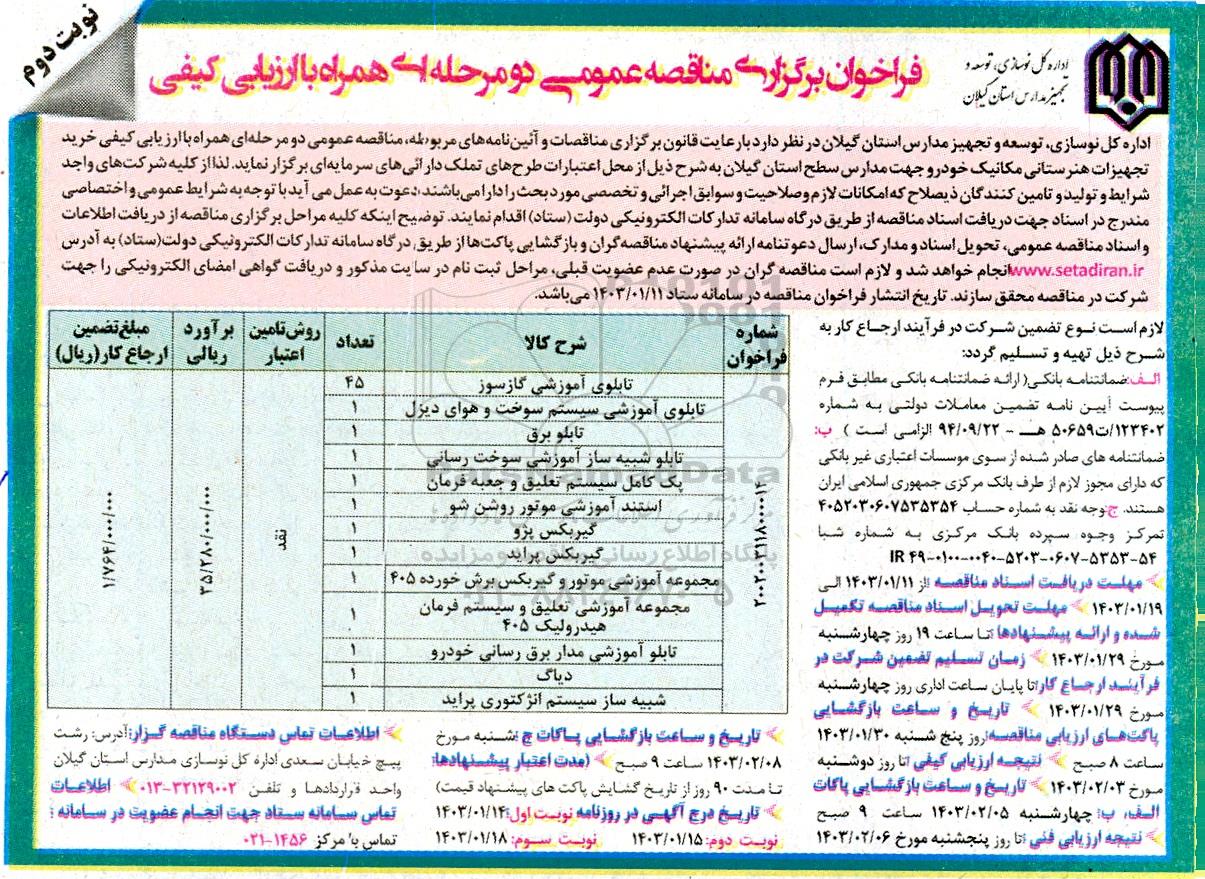 نوبت دوم
اداره کل نوسازی، توسعه و
تجهیز مدارس استان گیلان
فراخوان برگزاری مناقصه عمومی دو مرحله ای همراه با ارزیابی کیفی
اداره کل نوسازی، توسعه و تجهیز مدارس استان گیلان در نظر دارد با رعایت قانون برگزاری مناقصات و آئین نامه های مربوطه، مناقصه عمومی دو مرحله ای همراه با ارزیابی کیفی خرید
تجهیزات هنرستانی مکانیک خودرو جهت مدارس سطح استان گیلان به شرح ذیل از محل اعتبارات طرح های تملک دارائی های سرمایه ای برگزار نماید. لذا از کلیه شرکت های واجد
شرایط و تولید و تامین کنندگان ذیصلاح که امکانات لازم و صلاحیت و سوابق اجرائی و تخصصی مورد بحث را دارا می باشند، دعوت به عمل می آید با توجه به شرایط عمومی و اختصاصی
مندرج در اسناد جهت دریافت اسناد مناقصه از طریق درگاه سامانه تدارکات الکترونیکی دولت (ستاد) اقدام نمایند. توضیح اینکه کلیه مراحل برگزاری مناقصه از دریافت اطلاعات
و اسناد مناقصه عمومی، تحویل اسناد و مدارک، ارسال دعوتنامه ارائه پیشنهاد مناقصه گران و بازگشایی پاکت ها از طریق درگاه سامانه تدارکات الکترونیکی دولت (ستاد) به آدرس
www.setadiran.ir انجام خواهد شد و لازم است مناقصه گران در صورت عدم عضویت قبلی، مراحل ثبت نام در سایت مذکور و دریافت گواهی امضای الکترونیکی را جهت
شرکت در مناقصه محقق سازند. تاریخ انتشار فراخوان مناقصه در سامانه ستاد ۱۴۰۳/۰۱/۱۱ می باشد.
لازم است نوع تضمین شرکت در فرآیند ارجاع کار به
شرح ذیل تهیه و تسلیم گردد:
الف: ضمانتنامه بانکی (ارائه ضمانتنامه بانکی مطابق فرم
پیوست آیین نامه تضمین معاملات دولتی به شماره
۱۲۳۴۰۲/ت۵۰۶۵۹ هـ - ۹۴/۰۹/۲۲ الزامی است ) ب:
ضمانتنامه های صادر شده از سوی موسسات اعتباری غیر بانکی
که دارای مجوز لازم از طرف بانک مرکزی جمهوری اسلامی ایران
هستند. ج: وجه نقد به شماره حساب ۴۰۵۲۰۳۰۶۰۷۵۳۵۳۵۴
تمرکز وجوه سپرده بانک مرکزی به شماره شبا
IR ۴۹-۰۱۰۰-۰۰۴۰-۵۲۰۳-۰۶۰۷-۵۳۵۳-۵۴
مهلت دریافت اسناد مناقصه: از ۱۴۰۳/۰۱/۱۱ الی
۱۴۰۳/۰۱/۱۹ مهلت تحویل اسناد مناقصه تکمیل
شده و ارائه پیشنهادها: تا ساعت ۱۹ روز چهارشنبه
مورخ ۱۴۰۳/۰۱/۲۹ زمان تسلیم تضمین شرکت در
فرآیند ارجاع کار: تا پایان ساعت اداری روز چهارشنبه
مورخ ۱۴۰۳/۰۱/۲۹ تاریخ و ساعت بازگشایی
پاکت های ارزیابی مناقصه: روز پنج شنبه ۱۴۰۳/۰۱/۳۰
ساعت ۸ صبح نتیجه ارزیابی کیفی: تا روز دوشنبه
مورخ ۱۴۰۳/۰۲/۰۳ تاریخ و ساعت بازگشایی پاکات
الف، ب: چهارشنبه ۱۴۰۳/۰۲/۰۵ ساعت ۹ صبح
نتیجه ارزیابی فنی: تا روز پنجشنبه مورخ ۱۴۰۳/۰۲/۰۶
شماره فراخوان شرح کالا تعداد روش تامین اعتبار برآورد ریالی مبلغ تضمین ارجاع کار (ریال)
تابلوی آموزشی گازسوز ۴۵
تابلوی آموزشی سیستم سوخت و هوای دیزل ۱
تابلو برق ۱
تابلو شبیه ساز آموزشی سوخت رسانی ۱
پک کامل سیستم تعلیق و جعبه فرمان ۱
استند آموزشی موتور روشن شو ۱
گیربکس پژو ۱
گیربکس پراید ۱
مجموعه آموزشی موتور و گیربکس برش خورده ۴۰۵ ۱
مجموعه آموزشی تعلیق و سیستم فرمان
هیدرولیک ۴۰۵ ۱
تابلو آموزشی مدار برق رسانی خودرو ۱
دیاگ ۱
شبیه ساز سیستم انژکتوری پراید ۱
نقد
۳۵/۲۸۰/۰۰۰/۰۰۰
۱/۷۶۴/۰۰۰/۰۰۰
تاریخ و ساعت بازگشایی پاکات ج: شنبه مورخ
۱۴۰۳/۰۲/۰۸ ساعت ۹ صبح (مدت اعتبار پیشنهادها:
تا مدت ۹۰ روز از تاریخ گشایش پاکت های پیشنهاد قیمت)
تاریخ درج آگهی در روزنامه نوبت اول: ۱۴۰۳/۰۱/۱۴
نوبت دوم: ۱۴۰۳/۰۱/۱۵ نوبت سوم: ۱۴۰۳/۰۱/۱۸
اطلاعات تماس دستگاه مناقصه گزار: آدرس: رشت
پیچ خیابان سعدی اداره کل نوسازی مدارس استان گیلان
واحد قراردادها و تلفن ۳۲۱۲۹۰۰۲-۰۱۳ اطلاعات
تماس سامانه ستاد جهت انجام عضویت در سامانه :
تماس با مرکز ۱۴۵۶-۰۲۱